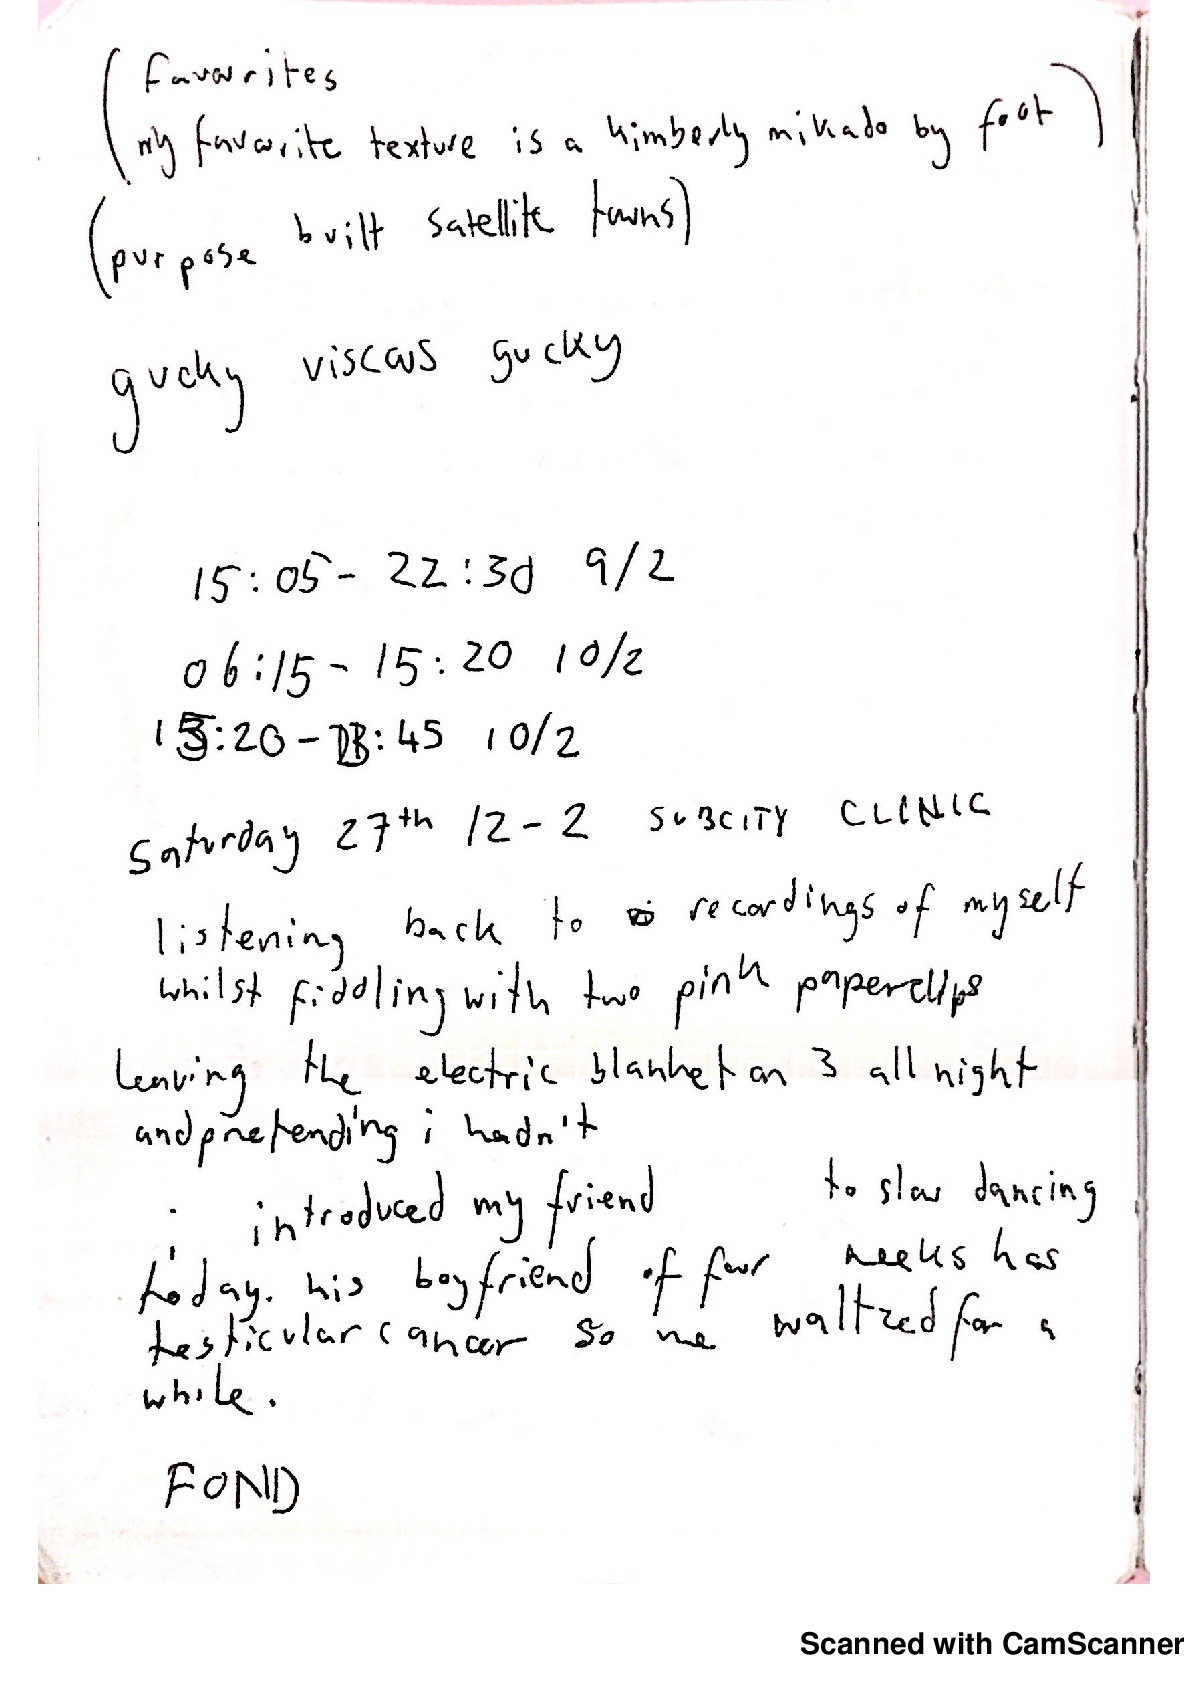 (favourites
my favourite texture is a kimberly mikado by foot)
(purpose built satellite towns)
gucky viscous gucky
15:05 - 22:30 9/2
06:15 - 15:20 10/2
15:20 - :45 10/2
Saturday 27th 12-2 SUBCITY CLINIC
listening back to recordings of myself
whilst fiddling with two pink paperclips
leaving the electric blanket on 3 all night
and pretending i hadn't
i introduced my friend to slow dancing
today. his boyfriend of four weeks has
testicular cancer so we waltzed for a
while.
FOND
Scanned with CamScanner